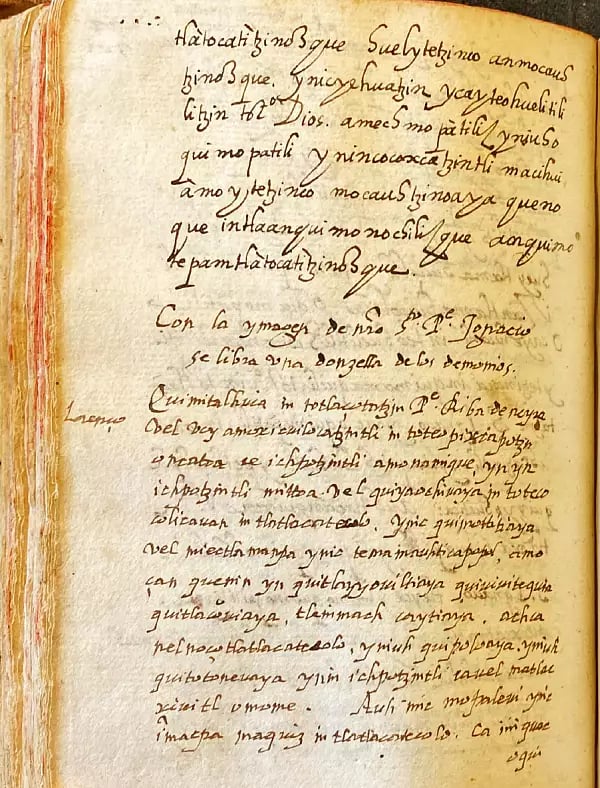 tlàtocatitzinoz̃que huelytetzinco anmocauh
tzinoz̃que. ynicyehuatzin ycayteohuelitili
litzin tot.º Dios. amechmopàtiliz yniuho
quimopatili ynincocoxcatzintli macihui
àmo ytetzinco mocauhtzinoaya queno
que intlaanquimonochilizque anquimo
tepamtlàtocatitzinoz̃que.
Con la ymagen de nr̃o S.to P.e Ignacio
se libra vna donzella delos demonios.
Quimitalhuia in totlaçotatzin P.e Riba deneyra
Lorenço
vel vey amoxicuilocatzintli in toteopixcapotzin
oncatca ce ichpotzintli amonamique, ynyn
ichpotzintli mittoa vel quiyaochivaya in toteco
colicauan in tlatlacatecolo, ynic quimottitiaya
vel miectlamanpa ynic temamauhticapopol, çamo
çan quemin yn quitlayyoviltiaya quivivitequia
quitlaçoviaya, tleinmach caytiaya. achca
nelnoço tlatlacatecolo, yniuh quipoloaya, yniuh
quitotonevaya ynin ichpotzintli ca vel matlac
xivitl omome. Auh inic mopalevi ynic
imacpa maquiz in tlatlacatecolo. Ca inquac
oqui